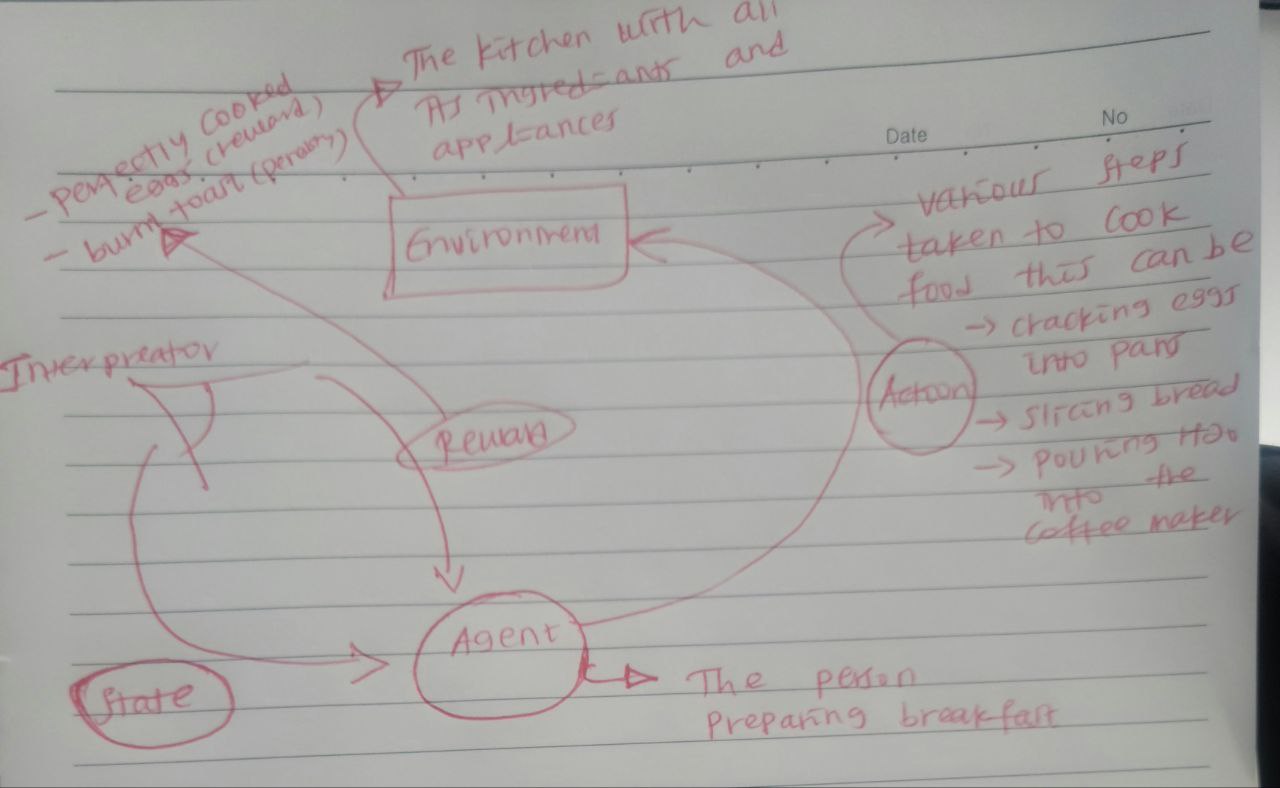 The kitchen with all
Its Ingredients and
appliances
- perfectly cooked
eggs (reward)
- burnt toast (penalty)
Date
No
Environment
various steps
taken to cook
food this can be
→ cracking eggs
into pans
→ slicing bread
→ pouring H2o
into the
coffee maker
Action
Interpreator
Reward
Agent
State
The person
preparing breakfast